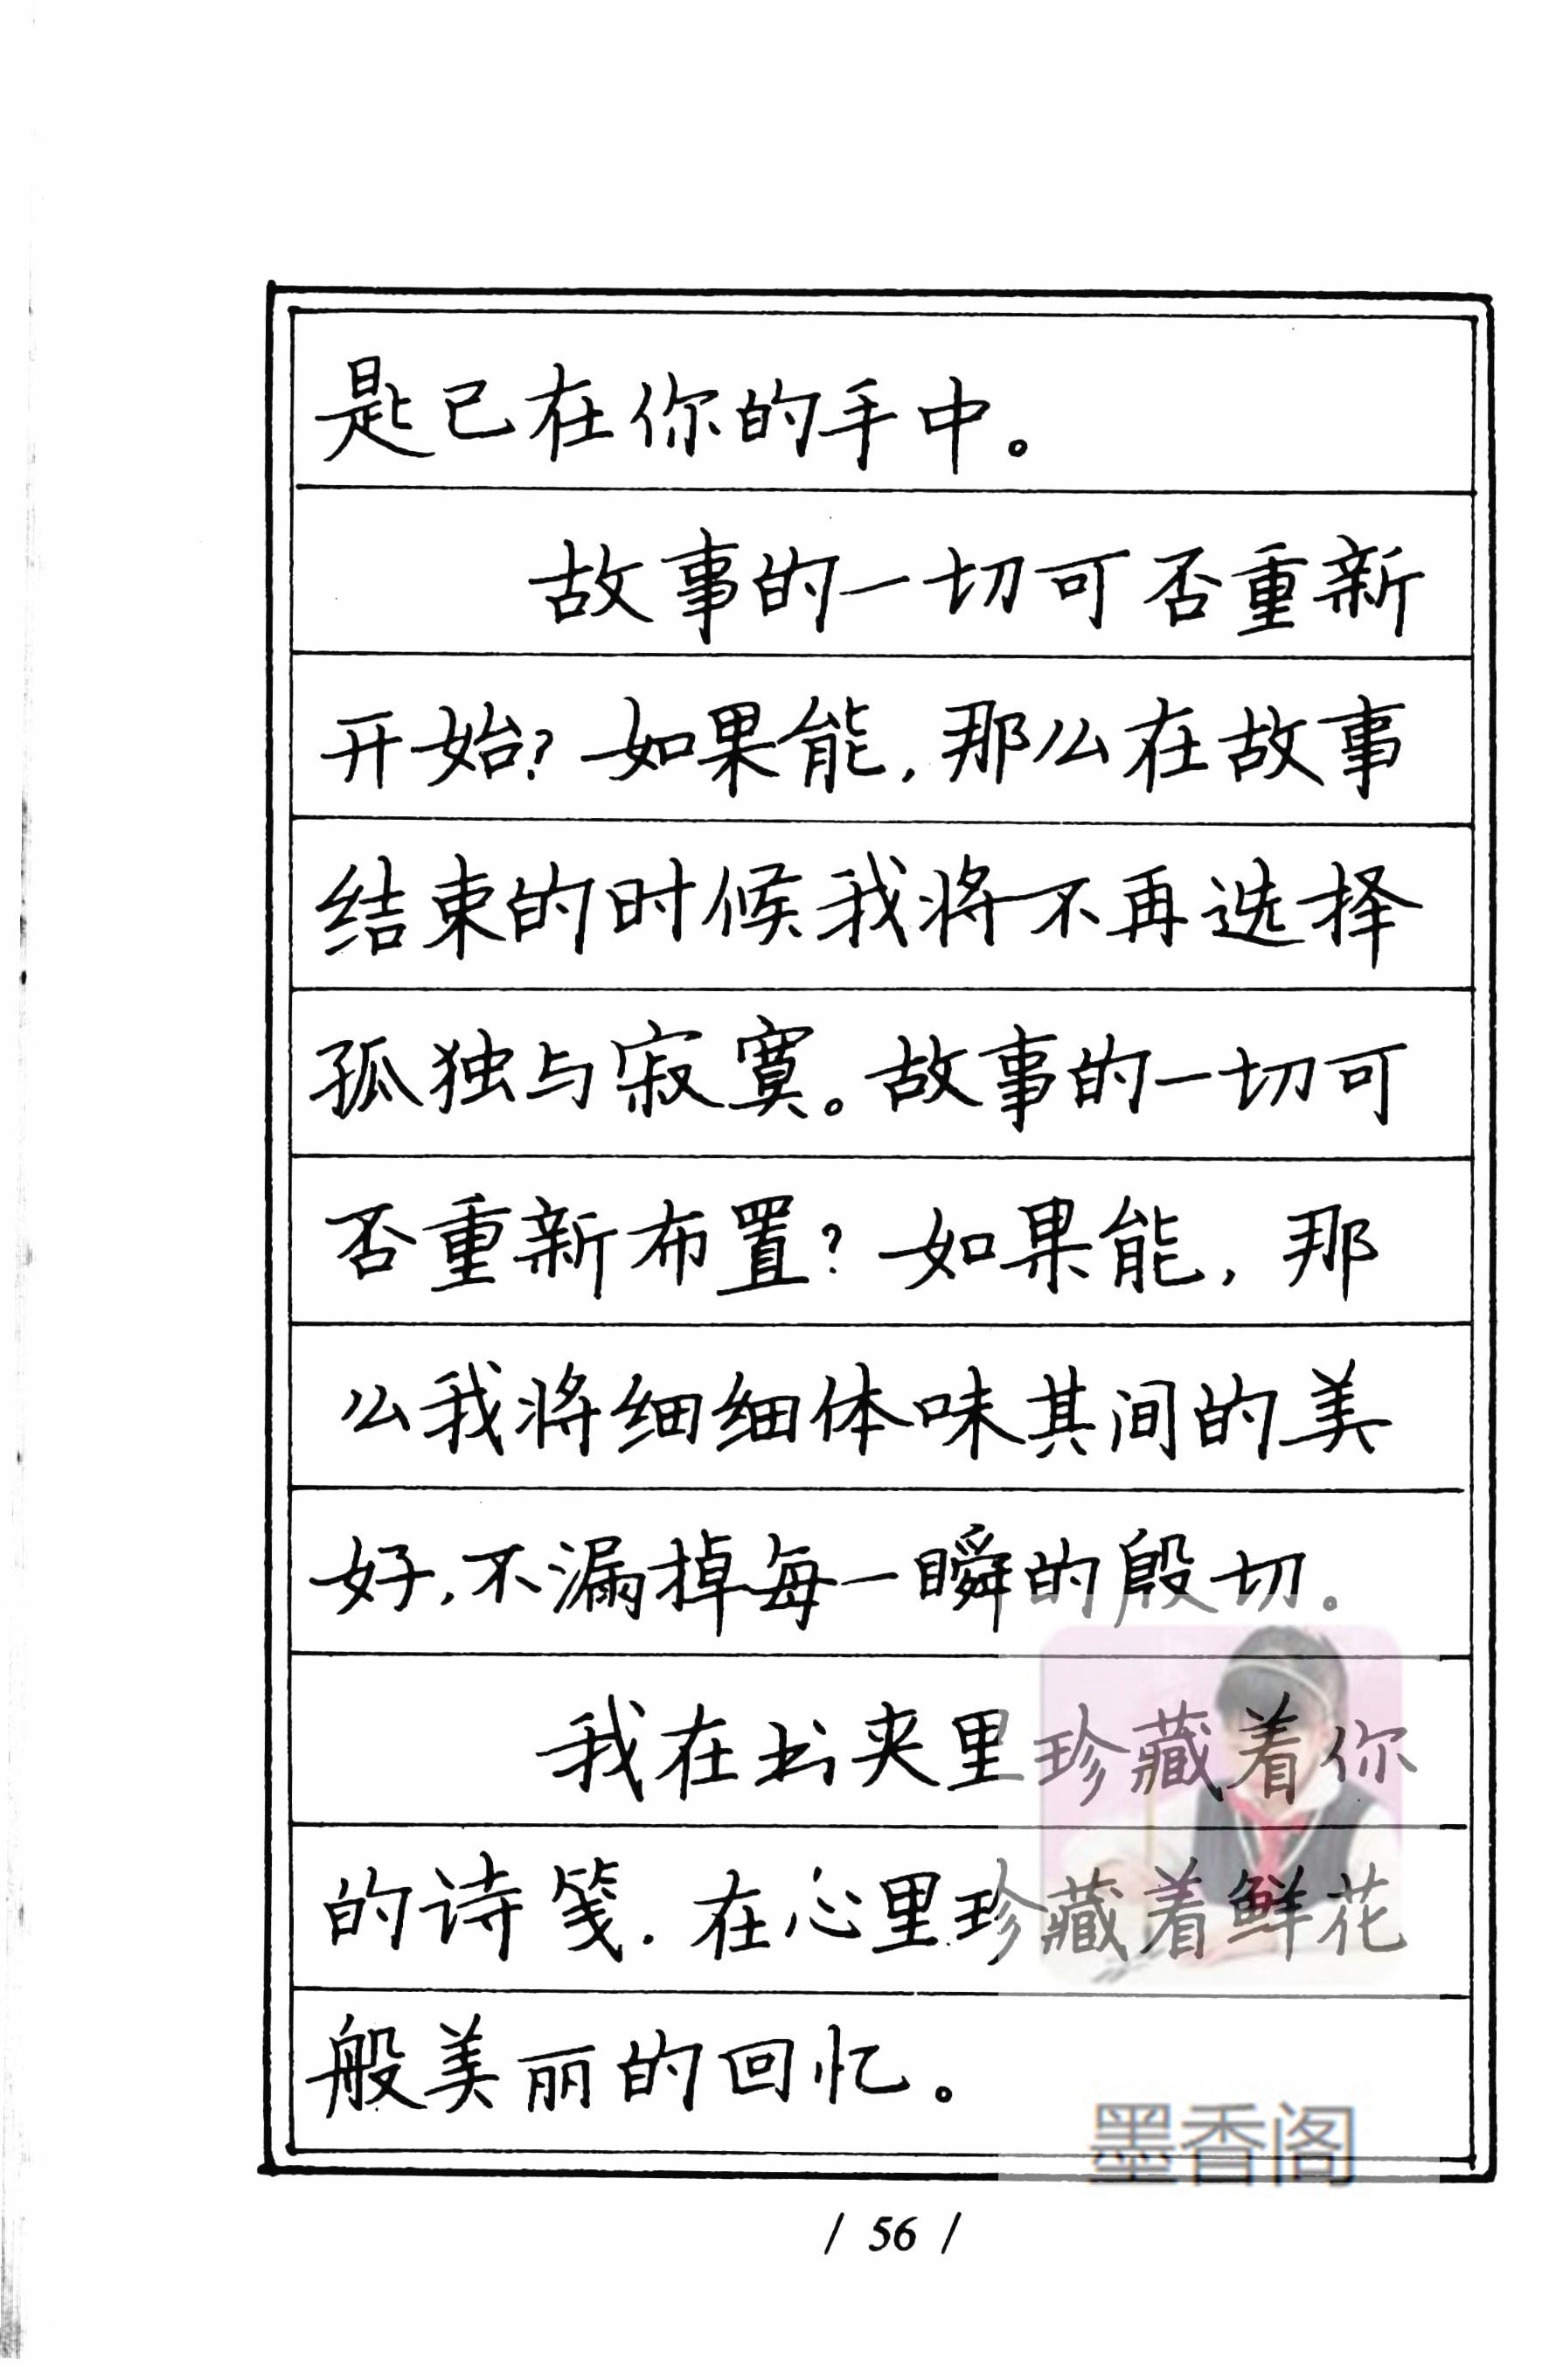 匙已在你的手中。
故事的一切可否重新
开始?如果能,那么在故事
结束的时候我将不再选择
孤独与寂寞。故事的一切可
否重新布置?如果能,那
么我将细细体味其间的美
好,不漏掉每一瞬的殷切。
我在书夹里珍藏着你
的诗笺.在心里珍藏着鲜花
般美丽的回忆。
墨香阁
/ 56 /